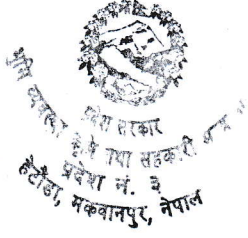 प्रदेश सरकार
भूमि व्यवस्था, कृषि तथा सहकारी
प्रदेश नं. ३
हेटौंडा, मकवानपुर, नेपाल